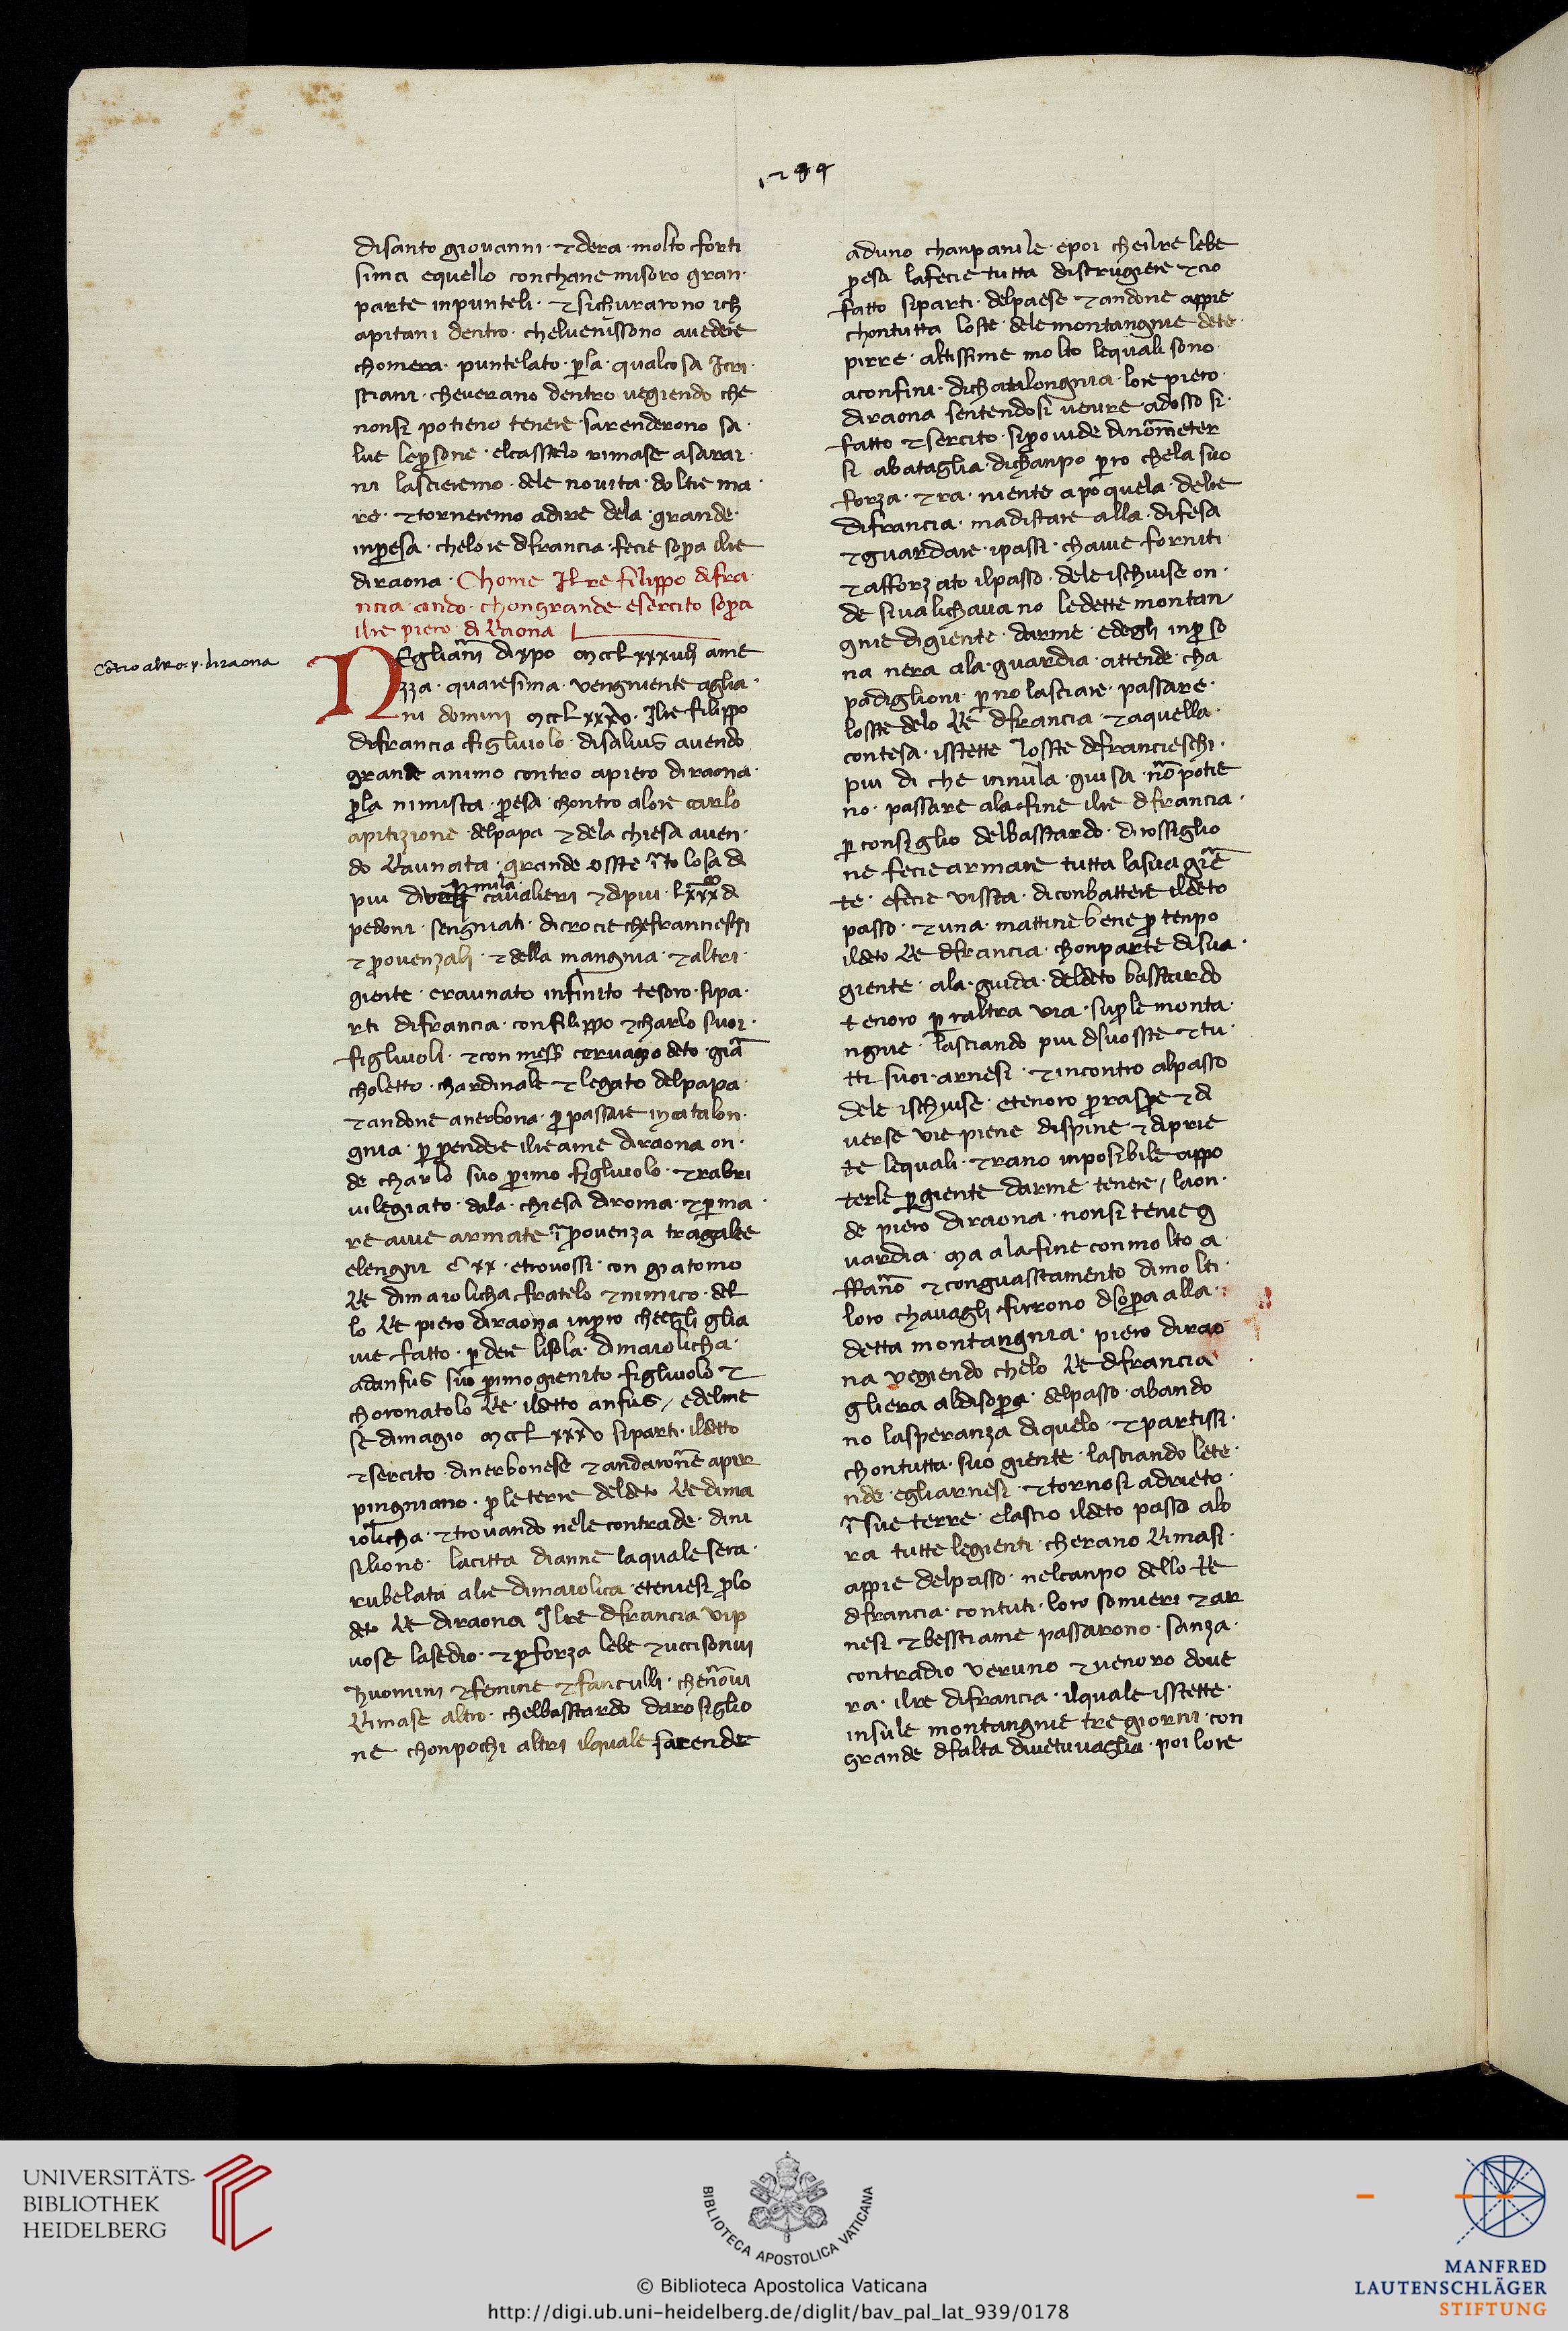 disanto giovanni · ⁊dera · molto forti
sima equello conchane misoro gran·
parte inpunteli · ⁊ sichurarono ich
apitani dentro · chelvenissono avedere
chomera · puntelato · p̱la · qualcosa Icri·
stiani · cheverano dentro vegiendo che
nonsi potieno tenere · sarenderono sa·
lve lep̱sone · elcastelo rimase asarai·
ni lascieremo · dele novita · doltre ma·
re · ⁊torneremo adire dela · grande·
inp̱esa · chelore dfrancia · fecie sop̱a ilre
diraona · Chome Ilre filippo difra·
ncia · ando · chongrande esercito sop̱a
ilre piero · di Raona
Contro alro · p · diraona
NEgliāni dixpo mcclxxxvii ame
zza · quaresima · vengniente aglia·
ni domini mcclxxxv · Ilre filippo
difrancia figliuolo · disaluis avendo
grande animo contro apiero diraona·
p̱la nimista · p̱esa · chontro alore carlo
apitizione · delpapa ⁊ dela chiesa aven·
do Raunata · grande osste ītolosa di
piu di mila cavalieri ⁊ dipiu · lxxx di
pedoni · sengniati · dicrocie chefranneschi
⁊ p̱ovenzali · ⁊ della mangnia · ⁊altri·
giente · eraunato infinito tesoro · sipa·
rti difrancia · confilippo ⁊charlo suoi·
figliuoli · ⁊con mess cervagio deto · giā
choletto · chardinale ⁊ legato delpapa·
⁊ andone anerbona · p̱ passare incatalon·
gnia · p̱ p̱endere ilreame diraona on·
de charlo suo p̱imo figliuolo · ⁊rabri
vilegiato · dala · chiesa diroma · ⁊p̱ma·
re avie armate ī p̱ovenza tragalee
elengni cxx · etrovossi · con giatomo
Re dimaiolicha fratelo ⁊nimico · del
lo Re piero diraona inp̱o cheegli glia
vie fatto · p̱dere lisola · dimaiolicha·
adanfus suo p̱imogienito figliuolo ⁊
choronatolo Re · ildetto anfus / edelme
se dimagio mcclxxxv siparti · ildetto
⁊sercito · dinerbonese ⁊andaronē aper
pingniano · p̱ leterre deldeto Re dima
iolicha · ⁊trovando nele contrade · din
silione · lacitta dianne laquale sera·
rubelata alre dimaiolica · etenesi p̱lo
deto Re diraona Ilre dfrancia vip
vose lasedio · ⁊ p̱forza lebe ⁊uccisonvi
huomini ⁊femine ⁊fanciulli · chenōvi
Rimase altro · chelbasstardo darosiglio
ne chonpochi altri ilquale sarende
aduno chanpanile · epoi cheilre lebe
p̱esa lafecie tutta distrugiere ⁊cio
fatto siparti · delpaese ⁊andone appie
chontutta loste · dele montangnie dete·
pirre · altissime molto lequali sono·
aconfini · dichatalongnia · lore piero·
diraona sentendosi venire adosso si·
fatto ⁊sercito · sip̱ovide dinōmeter
si abataglia · dichanpo p̱o chela suo
forza · ⁊ra · niente apo quela · delre
difrancia · madistare alla · difesa
⁊guardare · ipassi · chavie forniti·
⁊afforzato ilpasso · dele ischiuse on·
de sivalichavano ledette montan
gnie digiente · darme · edegli inp̱so
na nera ala · guardia · attende · cha
padiglioni · p̱no lasciare · passare·
losste delo Re dfrancia ⁊aquella·
contesa · isstette losste defrancieschi·
piu di che innula · guisa · nōpotie
no · passare alafine ilre dfrancia·
p̱ consiglio delbasstardo · dirossiglio
ne feciearmare tutta lasua giē
te · efecie vissta · diconbattere ildeto
passo · ⁊una · mattine bene p̱ tenpo
ildeto Re dfrancia · chonparte disua·
giente · ala · guida · deldeto basstardo
tenoro p̱ naltra via · sup̱le monta·
ngnie · lasciando piu dsuosste ⁊tu·
tti suoi · arnesi · ⁊incontro alpasso
dele ischiuse · etenoro p̱ raspe ⁊di
verse vie piene dispine · ⁊diprie
te lequali · ⁊rano inposibile appo
terle p̱giente darme · tenere / laon·
de piero diraona · nonsi tenieg
uardia · Ma alafine conmolto a·
ffānō ⁊conguasstamento dimolti·
loro chavagli · furono dsop̱a alla·
detta montangnia · piero dirao
na vegiendo chelo Re dfrancia
gliera aldisop̱a · delpasso · abando
no lasperanza diquelo · ⁊partissi·
chontutta · suo giente · lasciando lete·
nde · egliarnesi · ⁊tornosi adrieto·
ī sue terre · elascio ildeto passo alo
ra tutte legienti · cherano Rimasi·
appie delpasso · nelcanpo dello Re
dfrancia · contuti · loro somieri ⁊ar
nesi ⁊besstiame passarono · sanza·
contradio veruno ⁊venoro dove
ra · ilre difrancia · ilquale isstette·
insule montangnie tregiorni · con
grande dfalta divetuvaglia · poi lore
UNIVERSITÄTS-
BIBLIOTHEK
HEIDELBERG
BIBLIOTECA APOSTOLICA VATICANA
© Biblioteca Apostolica Vaticana
http://digi.ub.uni-heidelberg.de/diglit/bav_pal_lat_939/0178
MANFRED
LAUTENSCHLÄGER
STIFTUNG